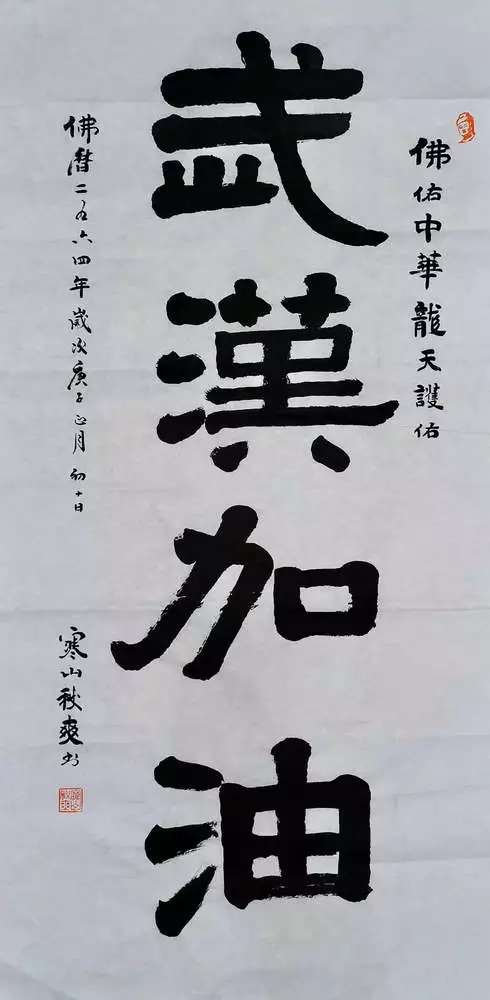 佛佑中華龍天護佑
武漢加油
佛曆二五六四年歲次庚子正月初十日
寒山秋爽書